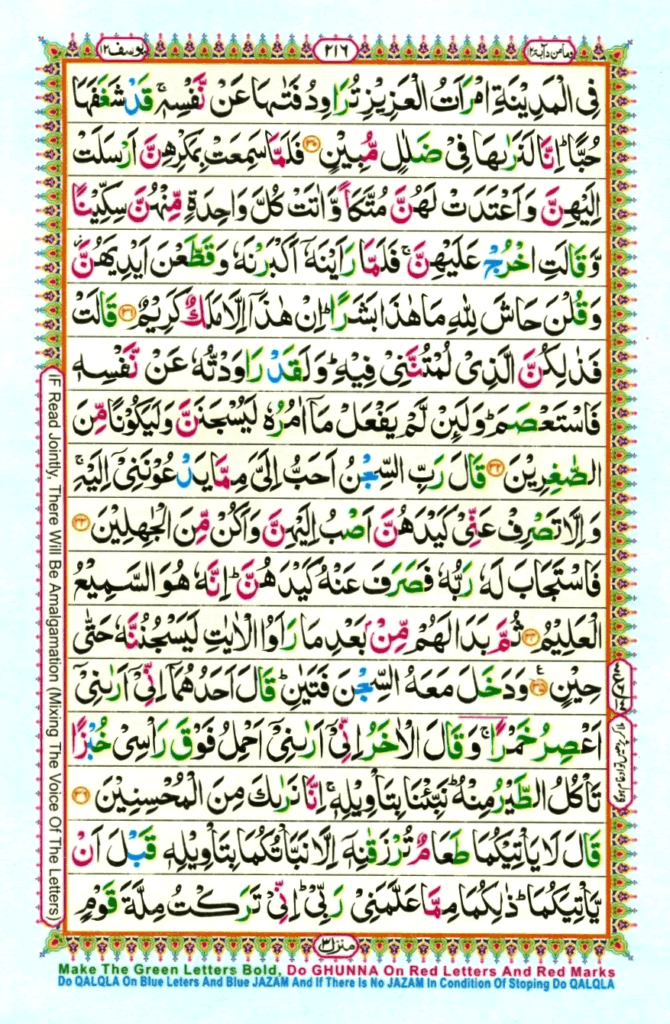 وما من دآبة ١٢
٢١٦
يوسف ١٢
فِى الْمَدِيْنَةِ امْرَاَتُ الْعَزِيْزِ تُرَاوِدُ فَتٰىهَا عَنْ نَّفْسِهٖ ۚ قَدْ شَغَفَهَا
حُبًّا ؕ اِنَّا لَنَرٰىهَا فِىْ ضَلٰلٍ مُّبِيْنٍ ﴿۳۰﴾ فَلَمَّا سَمِعَتْ بِمَكْرِهِنَّ اَرْسَلَتْ
اِلَيْهِنَّ وَاَعْتَدَتْ لَهُنَّ مُتَّكَاً وَّاٰتَتْ كُلَّ وَاحِدَةٍ مِّنْهُنَّ سِكِّيْنًا
وَّقَالَتِ اخْرُجْ عَلَيْهِنَّ ۚ فَلَمَّا رَاَيْنَهٗۤ اَكْبَرْنَهٗ وَقَطَّعْنَ اَيْدِيَهُنَّ
وَقُلْنَ حَاشَ لِلّٰهِ مَا هٰذَا بَشَرًا ؕ اِنْ هٰذَاۤ اِلَّا مَلَكٌ كَرِيْمٌ ﴿۳۱﴾ قَالَتْ
فَذٰلِكُنَّ الَّذِىْ لُمْتُنَّنِىْ فِيْهِ ؕ وَلَقَدْ رَاوَدْتُّهٗ عَنْ نَّفْسِهٖ
فَاسْتَعْصَمَ ؕ وَلَئِنْ لَّمْ يَفْعَلْ مَاۤ اٰمُرُهٗ لَيُسْجَنَنَّ وَلَيَكُوْنًا مِّنَ
الصّٰغِرِيْنَ ﴿۳۲﴾ قَالَ رَبِّ السِّجْنُ اَحَبُّ اِلَىَّ مِمَّا يَدْعُوْنَنِىْۤ اِلَيْهِ ۚ
وَاِلَّا تَصْرِفْ عَنِّىْ كَيْدَهُنَّ اَصْبُ اِلَيْهِنَّ وَاَكُنْ مِّنَ الْجٰهِلِيْنَ ﴿۳۳﴾
فَاسْتَجَابَ لَهٗ رَبُّهٗ فَصَرَفَ عَنْهُ كَيْدَهُنَّ ؕ اِنَّهٗ هُوَ السَّمِيْعُ
الْعَلِيْمُ ﴿۳۴﴾ ثُمَّ بَدَا لَهُمْ مِّنْۢ بَعْدِ مَا رَاَوُا الْاٰيٰتِ لَيَسْجُنُنَّهٗ حَتّٰى
حِيْنٍ ﴿۳۵﴾ وَدَخَلَ مَعَهُ السِّجْنَ فَتَيٰنِ ؕ قَالَ اَحَدُهُمَاۤ اِنِّىْۤ اَرٰىنِىْۤ
اَعْصِرُ خَمْرًا ۚ وَقَالَ الْاٰخَرُ اِنِّىْۤ اَرٰىنِىْۤ اَحْمِلُ فَوْقَ رَاْسِىْ خُبْزًا
تَاْكُلُ الطَّيْرُ مِنْهُ ؕ نَبِّئْنَا بِتَاْوِيْلِهٖ ۚ اِنَّا نَرٰىكَ مِنَ الْمُحْسِنِيْنَ ﴿۳۶﴾
قَالَ لَا يَاْتِيْكُمَا طَعَامٌ تُرْزَقٰنِهٖۤ اِلَّا نَبَّاْتُكُمَا بِتَاْوِيْلِهٖ قَبْلَ اَنْ
يَّاْتِيَكُمَا ؕ ذٰلِكُمَا مِمَّا عَلَّمَنِىْ رَبِّىْ ؕ اِنِّىْ تَرَكْتُ مِلَّةَ قَوْمٍ
منزل ٣
IF Read Jointly, There Will Be Amalgamation (Mixing The Voice Of The Letters)
Make The Green Letters Bold, Do GHUNNA On Red Letters And Red Marks
Do QALQLA On Blue Leters And Blue JAZAM And If There Is No JAZAM In Condition Of Stoping Do QALQLA